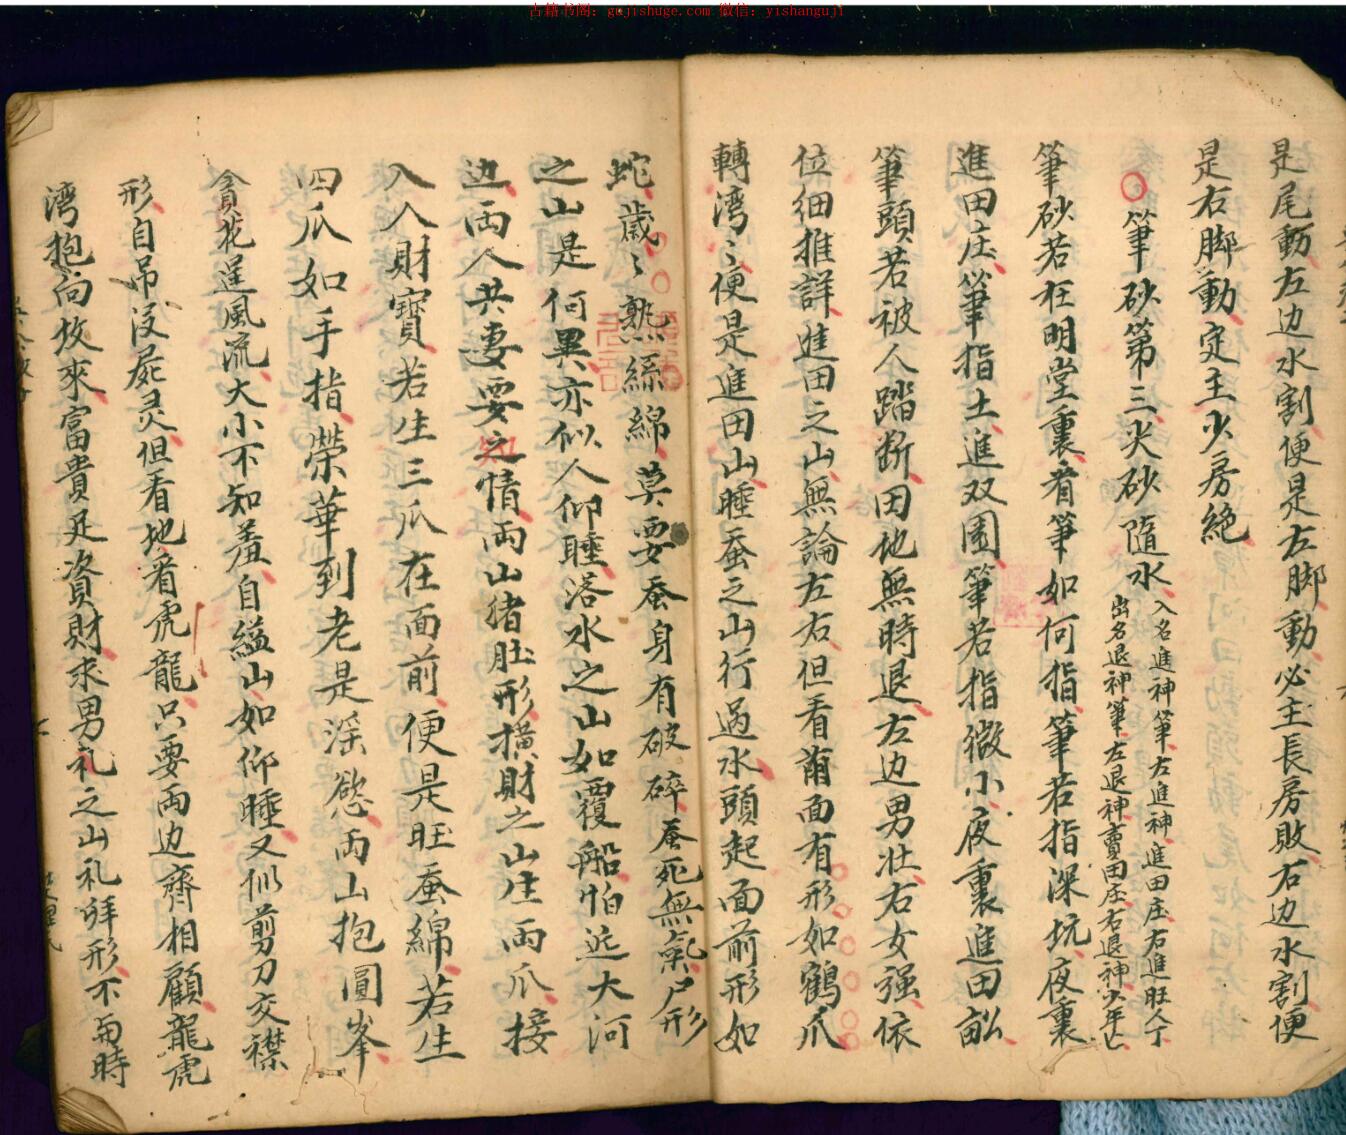 古籍书阁：gujishuge.com 微信：yishanguji
是尾動左边水割便是左脚動必主長房敗右边水割便
是右脚動定主少房絶
筆砂第三尖砂隨水
入名進神筆左進神進田庄右進旺人丁
出名退神筆左退神賣田庄右退神少年亡
筆砂若在明堂裏看筆如何指筆若指深坑夜裏
進田庄筆指土進双園筆若指微小夜裏進田畆
筆頭若被人踏断田地無時退左边男壮右女强依
位细推詳進田之山無論左右但看前面有形如鶴爪
轉湾〻便是進田山睡蚕之山行過水頭起面前形如
蛇歲〻熟絲綿莫要蚕身有破碎蚕死無氣尸形
之山是何異亦似人仰睡落水之山如覆船怕近大河
边两人共妻要之情两山猪肚形横財之山生两爪接
入人財寳若生三爪在面前便是旺蚕綿若生
四爪如手指榮華到老是淫慾两山抱圓峯
貪花逞風流大小不知羞自縊山如仰睡又似剪刀交襟
形自吊没屍灵但看地看虎龍只要两边齊相顧龍虎
湾抱向坟來富貴足資財求男礼之山礼拜形不旬時